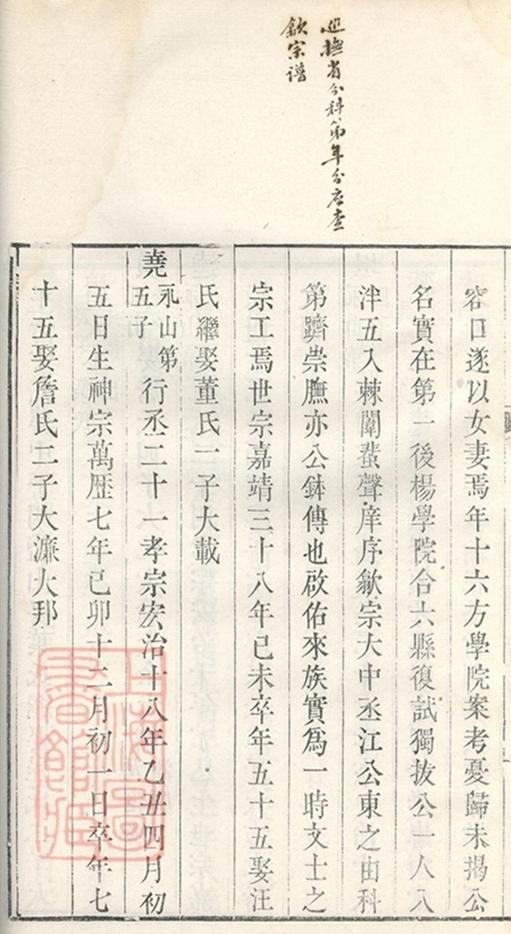 巡撫省分科第年分应查
歙宗谱
容口遂以女妻焉年十六方學院案考憂歸未揭公
名實在第一後楊學院合六縣復試獨拔公一人入
泮五入棘闈蜚聲庠序歙宗大中丞江公東之由科
第躋崇膴亦公鉢傳也啟佑來族實爲一時文士之
宗工焉世宗嘉靖三十八年已未卒年五十五娶汪
氏繼娶董氏一子大載
堯
永山第
五子
行丞二十一孝宗宏治十八年乙丑四月初
五日生神宗萬歷七年己卯十二月初一日卒年七
十五娶詹氏二子大濂大邦
上海圖
書館藏